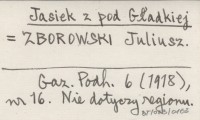 Jasiek z pod Gładkiej
= ZBOROWSKI Juliusz.
Gaz. Podh. 6 (1918),
nr 16. Nie dotyczy regionu.